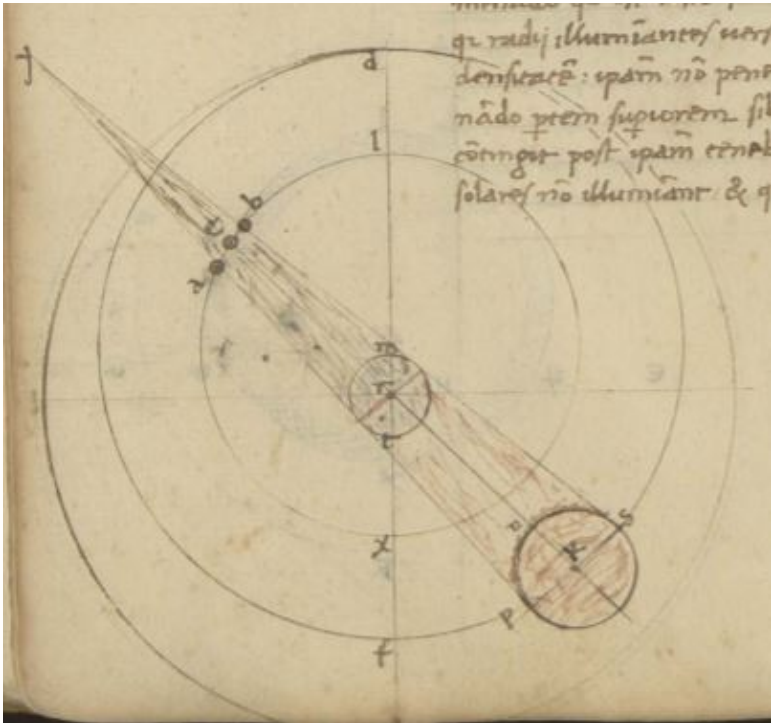 qr radij illumiãntes vers
densitatẽ: ipam nõ pene
nãdo ptem supiorem sil
cõtingit post ipam teneb
solares nõ illumiãnt & q
d
l
b
c
a
m
r
t
x
f
s
K
p